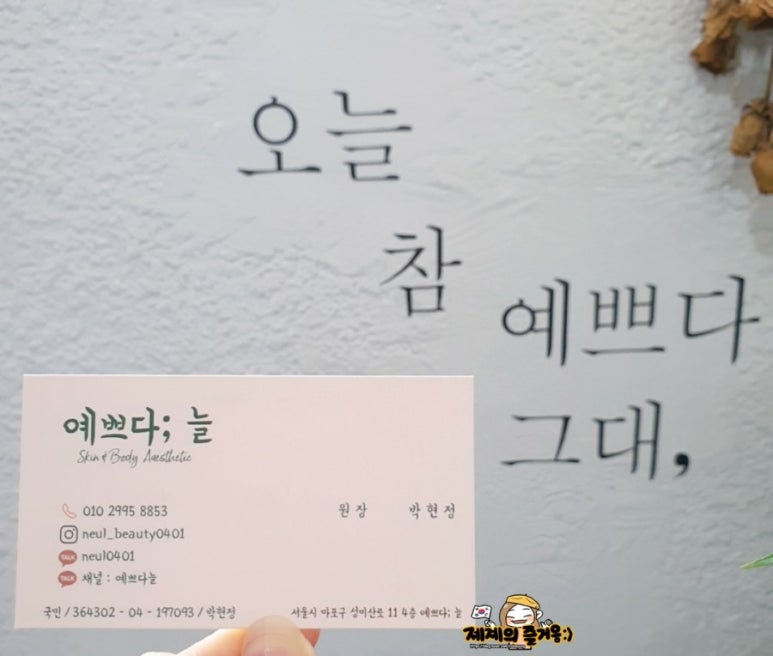 오늘
참
예쁘다
그대,
예쁘다; 늘
Skin & Body Aaesthetic
010 2995 8853
원장 박현정
neul_beauty0401
TALK neul0401
TALK 채널 : 예쁘다늘
국민 / 364302 - 04 - 197093 / 박현정
서울시 마포구 성미산로 11 4층 예쁘다; 늘
제제의 즐거움:)